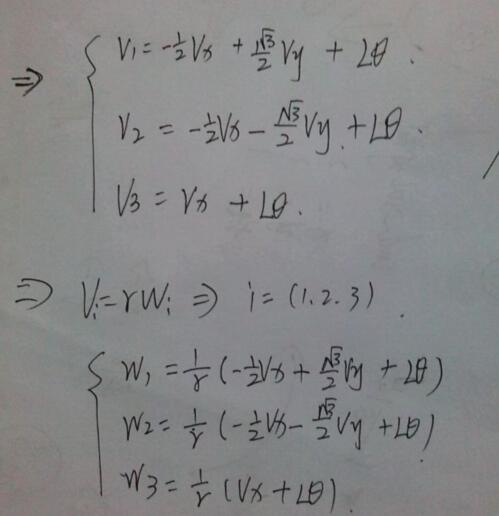 ⇒ { V₁ = -½Vx + √3/2 Vy + Lθ .
V₂ = -½Vx - √3/2 Vy + Lθ .
V₃ = Vx + Lθ .
⇒ Vᵢ = rWᵢ ⇒ i = (1.2.3) .
{ W₁ = 1/r (-½Vx + √3/2 Vy + Lθ)
W₂ = 1/r (-½Vx - √3/2 Vy + Lθ)
W₃ = 1/r (Vx + Lθ) .